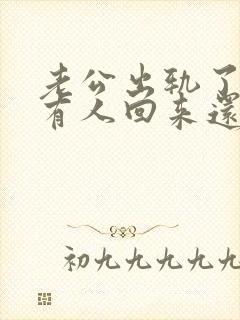 老公出轨了
有人回来還
初九九九九九